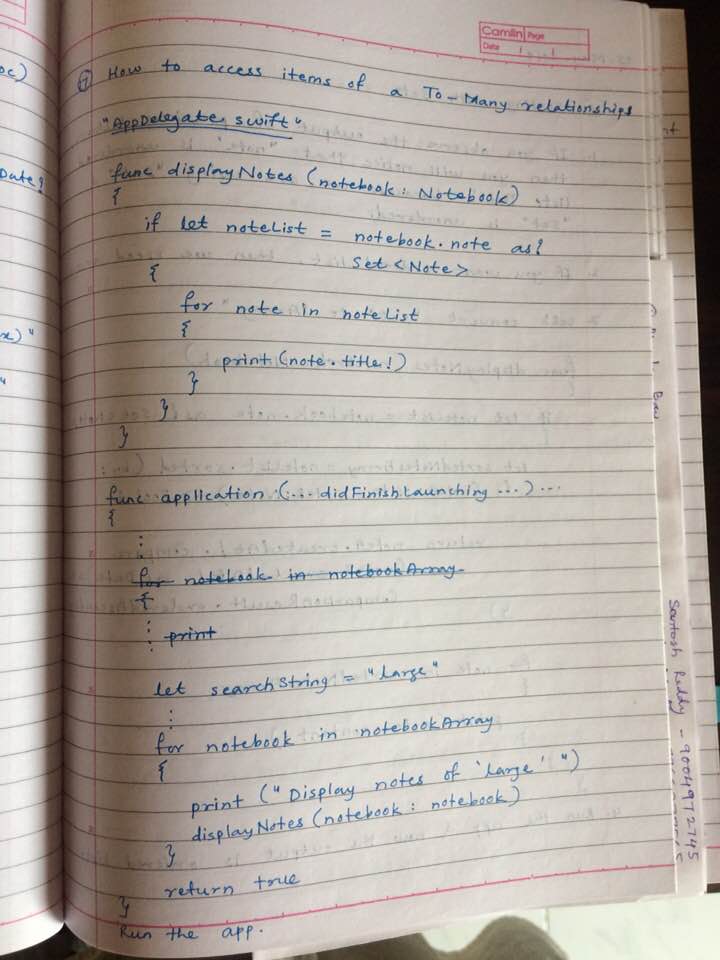 Camlin Page
Date / /
⑦ How to access items of a To-Many relationships
"AppDelegate.swift"
func displayNotes (notebook: Notebook)
{
if let noteList = notebook.note as?
Set<Note>
{
for note in noteList
{
print(note.title!)
}
}
}
func application (... didFinishLaunching ...) ...
{
⋮
for notebook in notebookArray
{
⋮ print
let searchString = "large"
⋮
for notebook in notebookArray
{
print ("Display notes of 'large' ")
displayNotes (notebook: notebook)
}
return true
}
Run the app.
oc)
Date?
x)"
Santosh Reddy - 9004972745